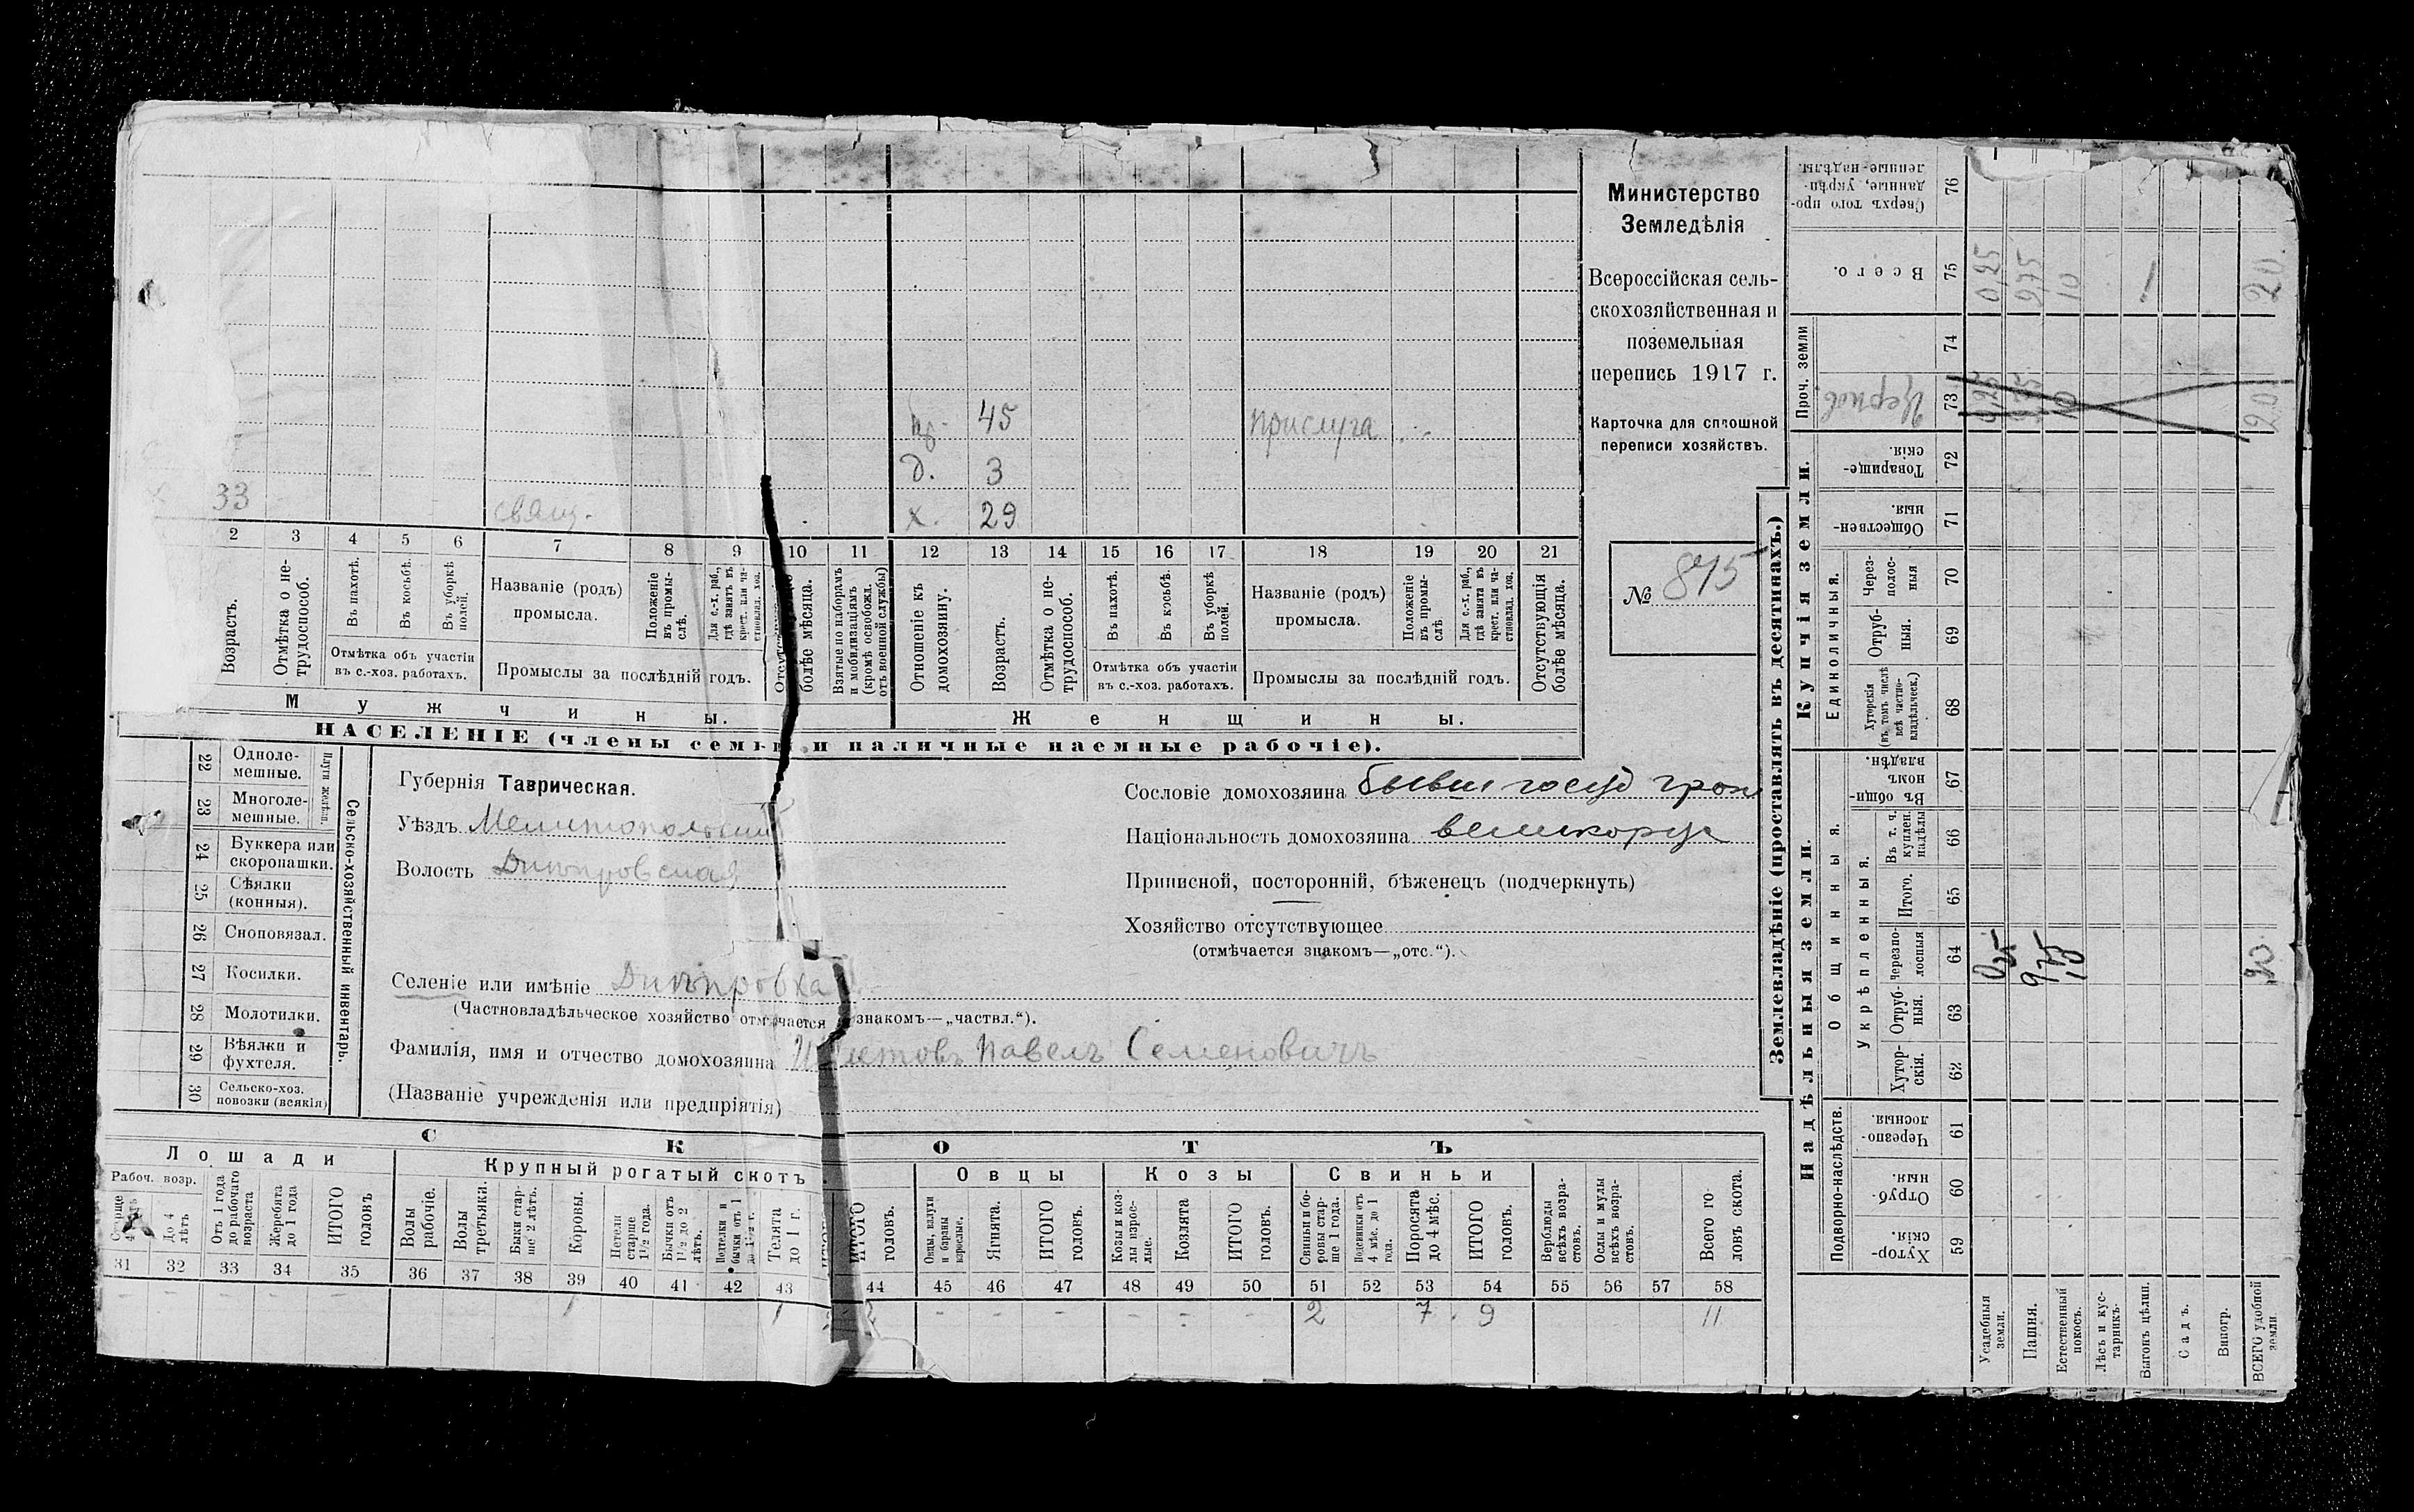 Министерство
Земледѣлія
Всероссійская сель-
скохозяйственная и
поземельная
перепись 1917 г.
Карточка для сплошной
переписи хозяйствъ.
№ 875
пр. 45 прислуга
д. 3
33 свящ. х. 29
2 3 4 5 6 7 8 9 10 11 12 13 14 15 16 17 18 19 20 21
Возрастъ.
Отмѣтка о не-
трудоспособ.
Въ пахотѣ.
Въ косьбѣ.
Въ уборкѣ
полей.
Отмѣтка объ участіи
въ с.-хоз. работахъ.
Названіе (родъ)
промысла.
Положеніе
въ промы-
слѣ.
Для с.-х. раб.,
гдѣ занятъ въ
крест. или ча-
стновлад. хоз.
Промыслы за послѣдній годъ.
болѣе мѣсяца.
Взятые по наборамъ
и мобилизаціямъ
(кромѣ освобожд.
отъ военной службы)
Отношеніе къ
домохозяину.
Возрастъ.
Отмѣтка о не-
трудоспособ.
Въ пахотѣ.
Въ косьбѣ.
Въ уборкѣ
полей.
Отмѣтка объ участіи
въ с.-хоз. работахъ.
Названіе (родъ)
промысла.
Положеніе
въ промы-
слѣ
Для с.-х. раб.,
гдѣ занята въ
крест. или ча-
стновлад. хоз.
Промыслы за послѣдній годъ.
Отсутствующія
болѣе мѣсяца.
Мужчины.
Женщины.
НАСЕЛЕНІЕ (члены семьи и наличные наемные рабочіе).
Сельско-хозяйственный инвентарь.
Плуги желѣзн.
22 Одноле-
мешные.
23 Многоле-
мешные.
24 Буккера или
скоропашки.
25 Сѣялки
(конныя).
26 Сноповязал.
27 Косилки.
28 Молотилки.
29 Вѣялки и
фухтеля.
30 Сельско-хоз.
повозки (всякія)
Губернія Таврическая.
Уѣздъ Мелитопольскій
Волость Днѣпровская
Селеніе или имѣніе Днѣпровка
(Частновладѣльческое хозяйство отмѣчается знакомъ—„частвл.“).
Фамилія, имя и отчество домохозяина Павелъ Семеновичъ
(Названіе учрежденія или предпріятія)
Сословіе домохозяина бывш госуд
Національность домохозяина великорус
Приписной, посторонній, бѣженецъ (подчеркнуть)
Хозяйство отсутствующее
(отмѣчается знакомъ—„отс.“).
СКОТЪ
Лошади
Рабоч. возр.
До 4
лѣтъ
Отъ 1 года
до рабочаго
возраста
Жеребята
до 1 года
ИТОГО
головъ
Крупный рогатый скотъ.
Волы
рабочіе.
Волы
третьяки.
Быки стар-
ше 2 лѣтъ.
Коровы.
Нетели
старше
1½ года.
Бычки отъ
1½ до 2
лѣтъ.
Нетелики и
бычки отъ 1
до 1½ г.
Телята
до 1 г.
ИТОГО
головъ.
Овцы
Овцы, валухи
и бараны
взрослые.
Ягнята.
ИТОГО
головъ.
Козы
Козы и коз-
лы взрос-
лые.
Козлята
ИТОГО
головъ.
Свиньи
Свиньи и бо-
ровы стар-
ше 1 года.
Подсвинки отъ
4 мѣс. до 1
года.
Поросята
до 4 мѣс.
ИТОГО
головъ.
Верблюды
всѣхъ возра-
стовъ.
Ослы и мулы
всѣхъ возра-
стовъ.
Всего го-
ловъ скота.
31 32 33 34 35 36 37 38 39 40 41 42 43 44 45 46 47 48 49 50 51 52 53 54 55 56 57 58
- - - - - 1 1 2 - - - - - - 2 7 9 11
Землевладѣніе (проставлять въ десятинахъ.)
Надѣльныя земли.
Подворно-наслѣдств.
Хутор-
скія. 59
Отруб-
ныя. 60
Черезпо-
лосныя. 61
Общинныя.
Укрѣпленныя.
Хутор-
скія. 62
Отруб-
ныя. 63
Черезпо-
лосныя 64
Итого. 65
Въ т. ч.
куплен.
надѣлы 66
Въ общи-
номъ
владѣн. 67
Купчія земли.
Единоличныя.
Хуторскія
(въ томъ числѣ
всѣ частно-
владѣльческ.) 68
Отруб-
ныя. 69
Через-
полос-
ныя 70
Обществен-
ныя. 71
Товарище-
скія. 72
Проч. земли
Церков 73
74
Всего. 75
Сверхъ того про-
данные, укрѣп-
ленные надѣлы. 76
Усадебныя
земли. 0,25 0,25 0,25
Пашня. 9,75 9,75 9,75
Естественный
покосъ. 10 10 10
Лѣсъ и кус-
тарникъ.
Выгонъ цѣлин.
Садъ.
Виногр.
ВСЕГО удобной
земли. 20 20 20.